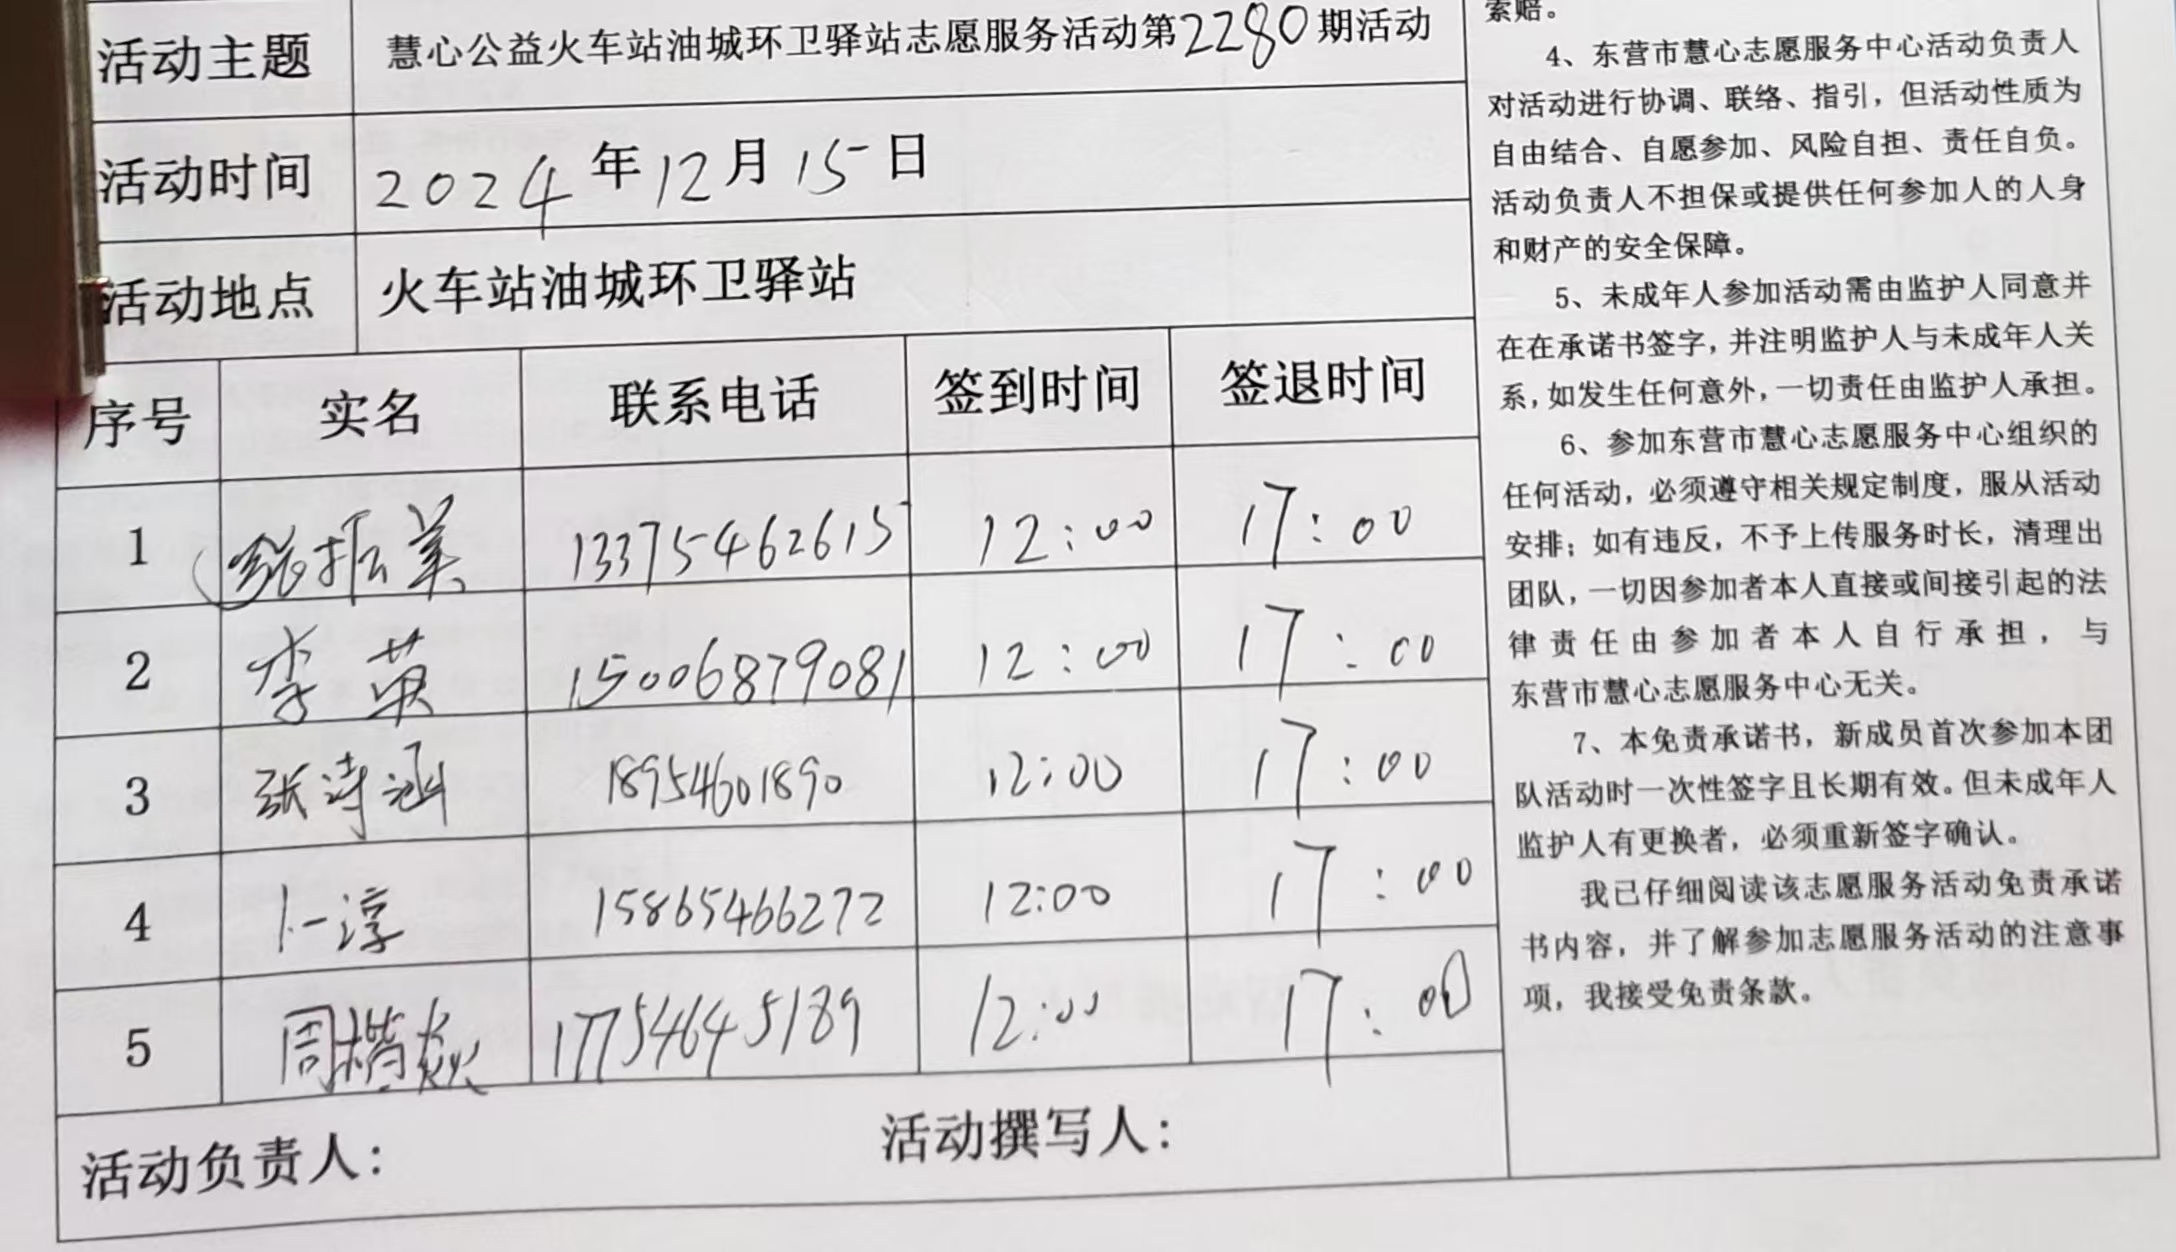 活动主题 慧心公益火车站油城环卫驿站志愿服务活动第2280期活动
活动时间 2024年12月15日
活动地点 火车站油城环卫驿站
序号 实名 联系电话 签到时间 签退时间
1 张振美 13375462615 12:00 17:00
2 李英 15006879081 12:00 17:00
3 张诗涵 18954601890 12:00 17:00
4 卜一淳 15865466272 12:00 17:00
5 周楷焱 17754645189 12:00 17:00
活动负责人: 活动撰写人:
索赔。
4、东营市慧心志愿服务中心活动负责人
对活动进行协调、联络、指引,但活动性质为
自由结合、自愿参加、风险自担、责任自负。
活动负责人不担保或提供任何参加人的人身
和财产的安全保障。
5、未成年人参加活动需由监护人同意并
在在承诺书签字,并注明监护人与未成年人关
系,如发生任何意外,一切责任由监护人承担。
6、参加东营市慧心志愿服务中心组织的
任何活动,必须遵守相关规定制度,服从活动
安排;如有违反,不予上传服务时长,清理出
团队,一切因参加者本人直接或间接引起的法
律责任由参加者本人自行承担,与
东营市慧心志愿服务中心无关。
7、本免责承诺书,新成员首次参加本团
队活动时一次性签字且长期有效。但未成年人
监护人有更换者,必须重新签字确认。
我已仔细阅读该志愿服务活动免责承诺
书内容,并了解参加志愿服务活动的注意事
项,我接受免责条款。